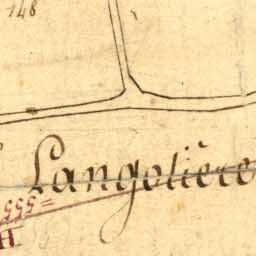 148
Langotière
=555